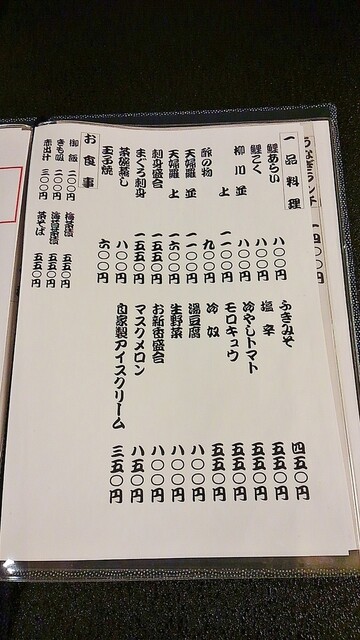 うなぎランチ 一四〇〇円
一品料理
鯉あらい 八〇〇円
鯉こく 八〇〇円
柳川 並 八〇〇円
上 一一〇〇円
酢の物 九〇〇円
天婦羅 並 一一〇〇円
天婦羅 上 一六〇〇円
刺身盛合 一五五〇円
まぐろ刺身 一五五〇円
茶碗蒸し 八〇〇円
玉子焼 六〇〇円
ふきみそ 四五〇円
塩辛 五五〇円
冷やしトマト 五五〇円
モロキュウ 五五〇円
冷奴 五五〇円
湯豆腐 八〇〇円
生野菜 八〇〇円
お新香盛合 八〇〇円
マスクメロン 八五〇円
自家製アイスクリーム 三五〇円
お食事
御飯 二〇〇円
きも吸 二〇〇円
赤出汁 三〇〇円
梅茶漬 五五〇円
海苔茶漬 五五〇円
茶そば 五五〇円